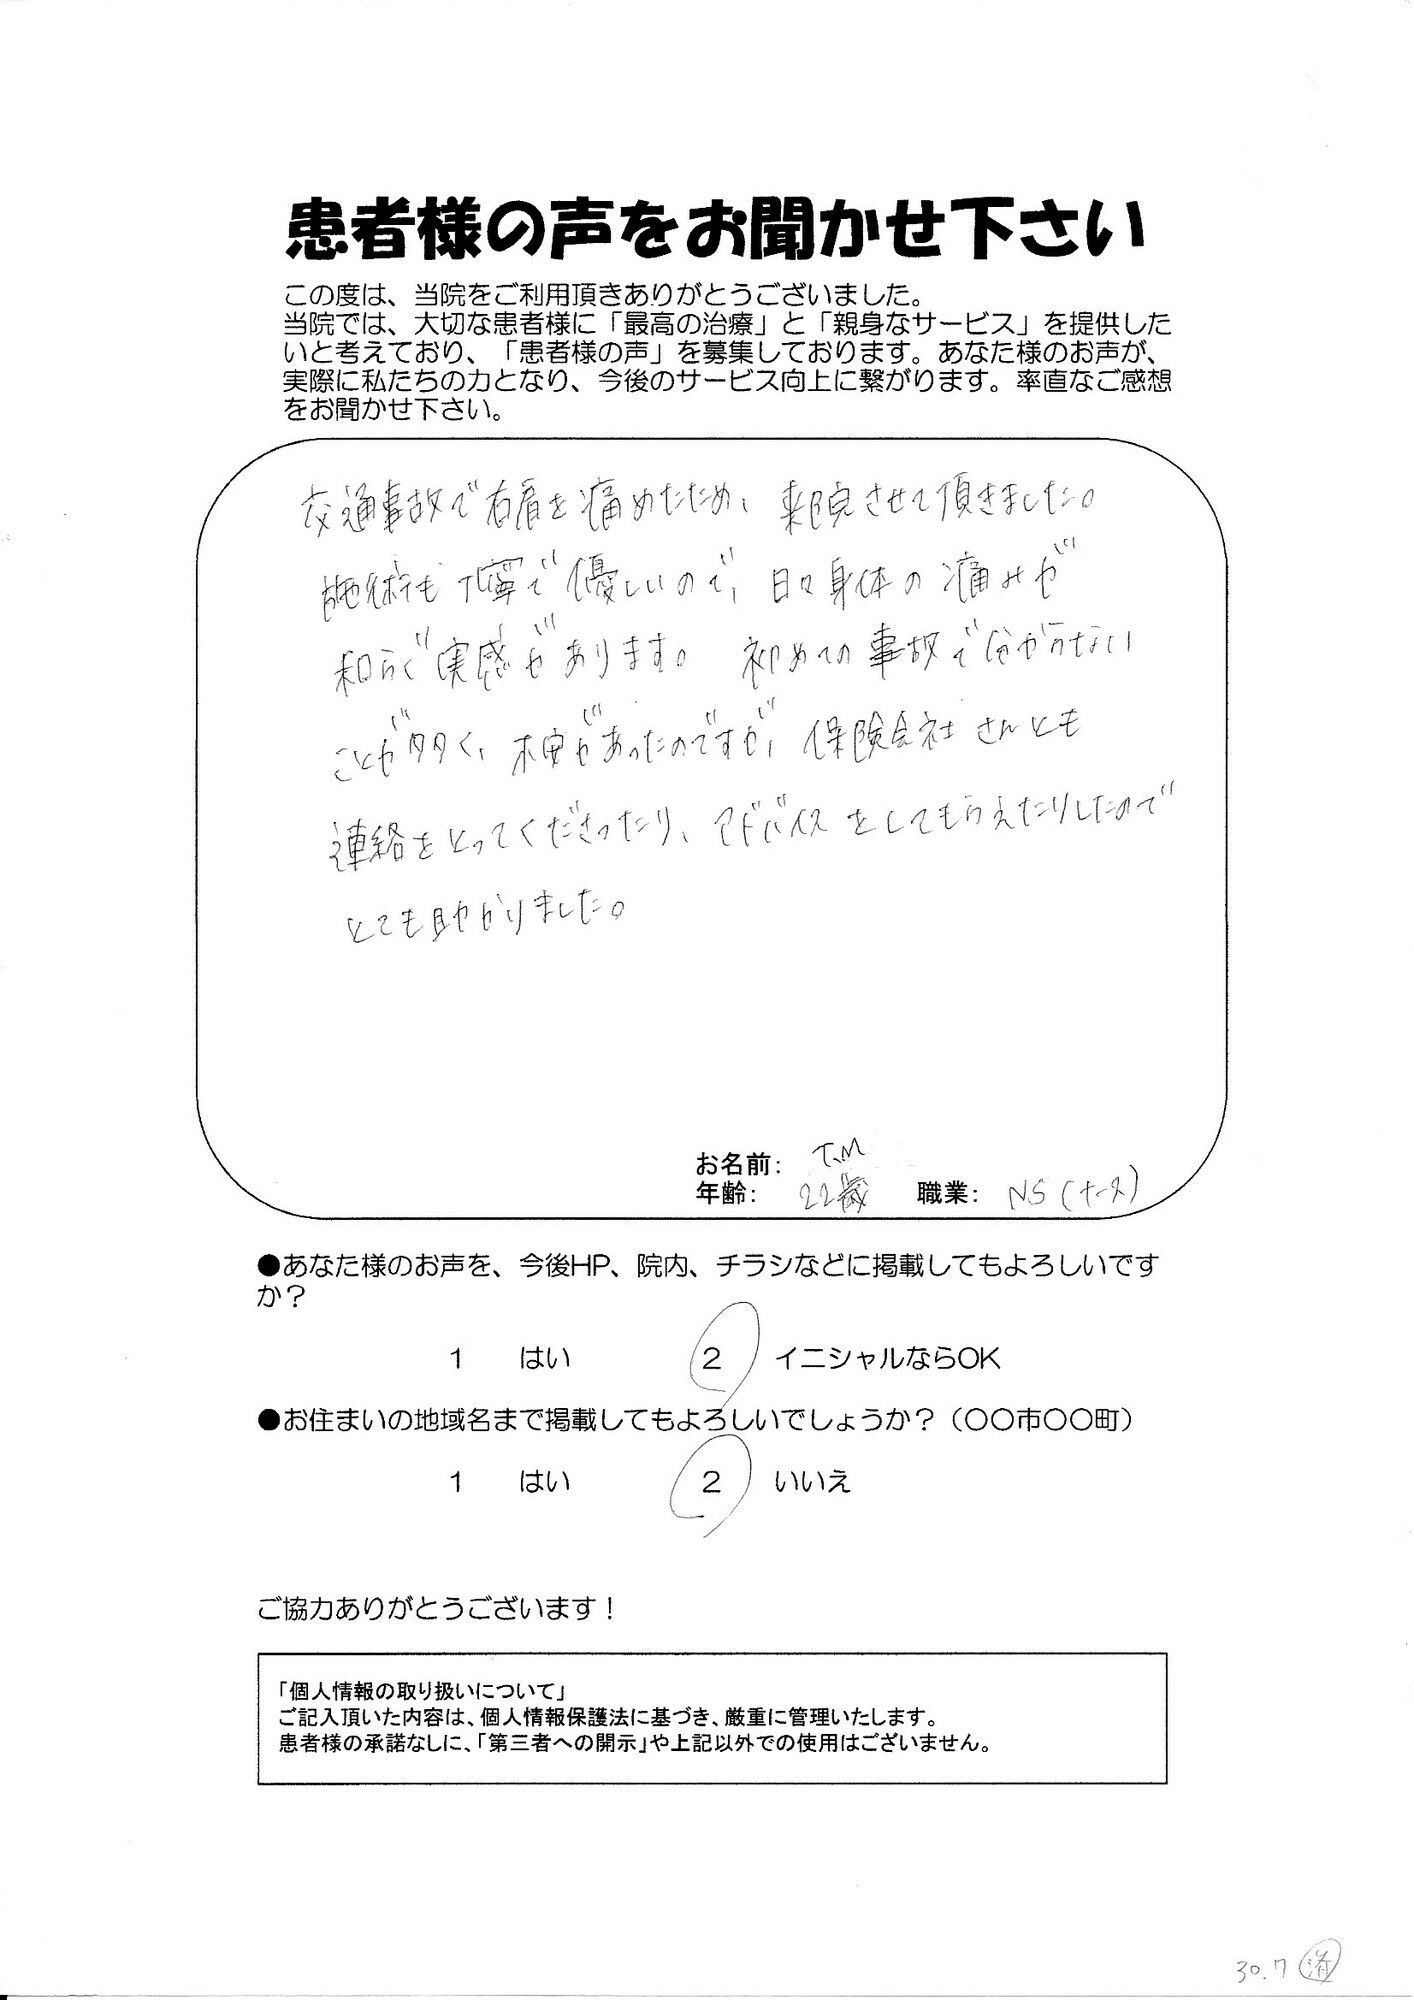 患者様の声をお聞かせ下さい
この度は、当院をご利用頂きありがとうございました。
当院では、大切な患者様に「最高の治療」と「親身なサービス」を提供した
いと考えており、「患者様の声」を募集しております。あなた様のお声が、
実際に私たちの力となり、今後のサービス向上に繋がります。率直なご感想
をお聞かせ下さい。
交通事故で右肩を痛めたため、来院させて頂きました。
施術も丁寧で優しいので、日々身体の痛みが
和らぐ実感があります。初めての事故で分からない
ことが多く、不安があったのですが、保険会社さんとも
連絡をとってくださったり、アドバイスをしてもらえたりしたので
とても助かりました。
お名前: T.M
年齢: 22歳 職業: NS(ナース)
●あなた様のお声を、今後HP、院内、チラシなどに掲載してもよろしいです
か?
1 はい 2 イニシャルならOK
●お住まいの地域名まで掲載してもよろしいでしょうか?(〇〇市〇〇町)
1 はい 2 いいえ
ご協力ありがとうございます!
「個人情報の取り扱いについて」
ご記入頂いた内容は、個人情報保護法に基づき、厳重に管理いたします。
患者様の承諾なしに、「第三者への開示」や上記以外での使用はございません。
30.7 済